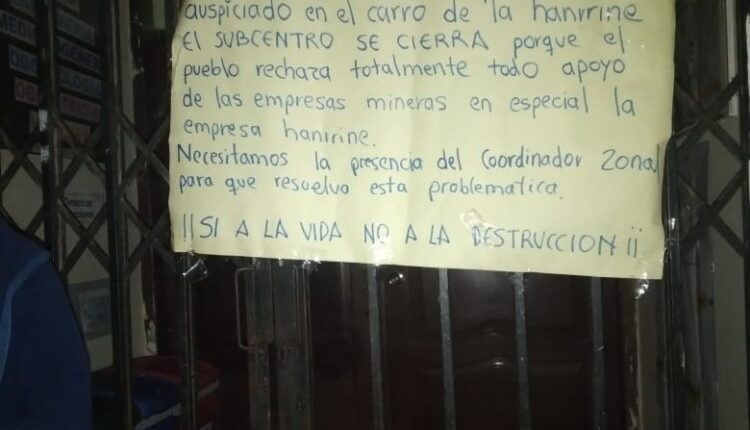 auspiciado en el carro de la hanrrine
El SUBCENTRO SE CIERRA porque el
pueblo rechaza totalmente todo apoyo
de las empresas mineras en especial la
empresa hanrrine.
Necesitamos la presencia del Coordinador Zonal
para que resuelva esta problematica.
¡¡SI A LA VIDA NO A LA DESTRUCCION¡¡